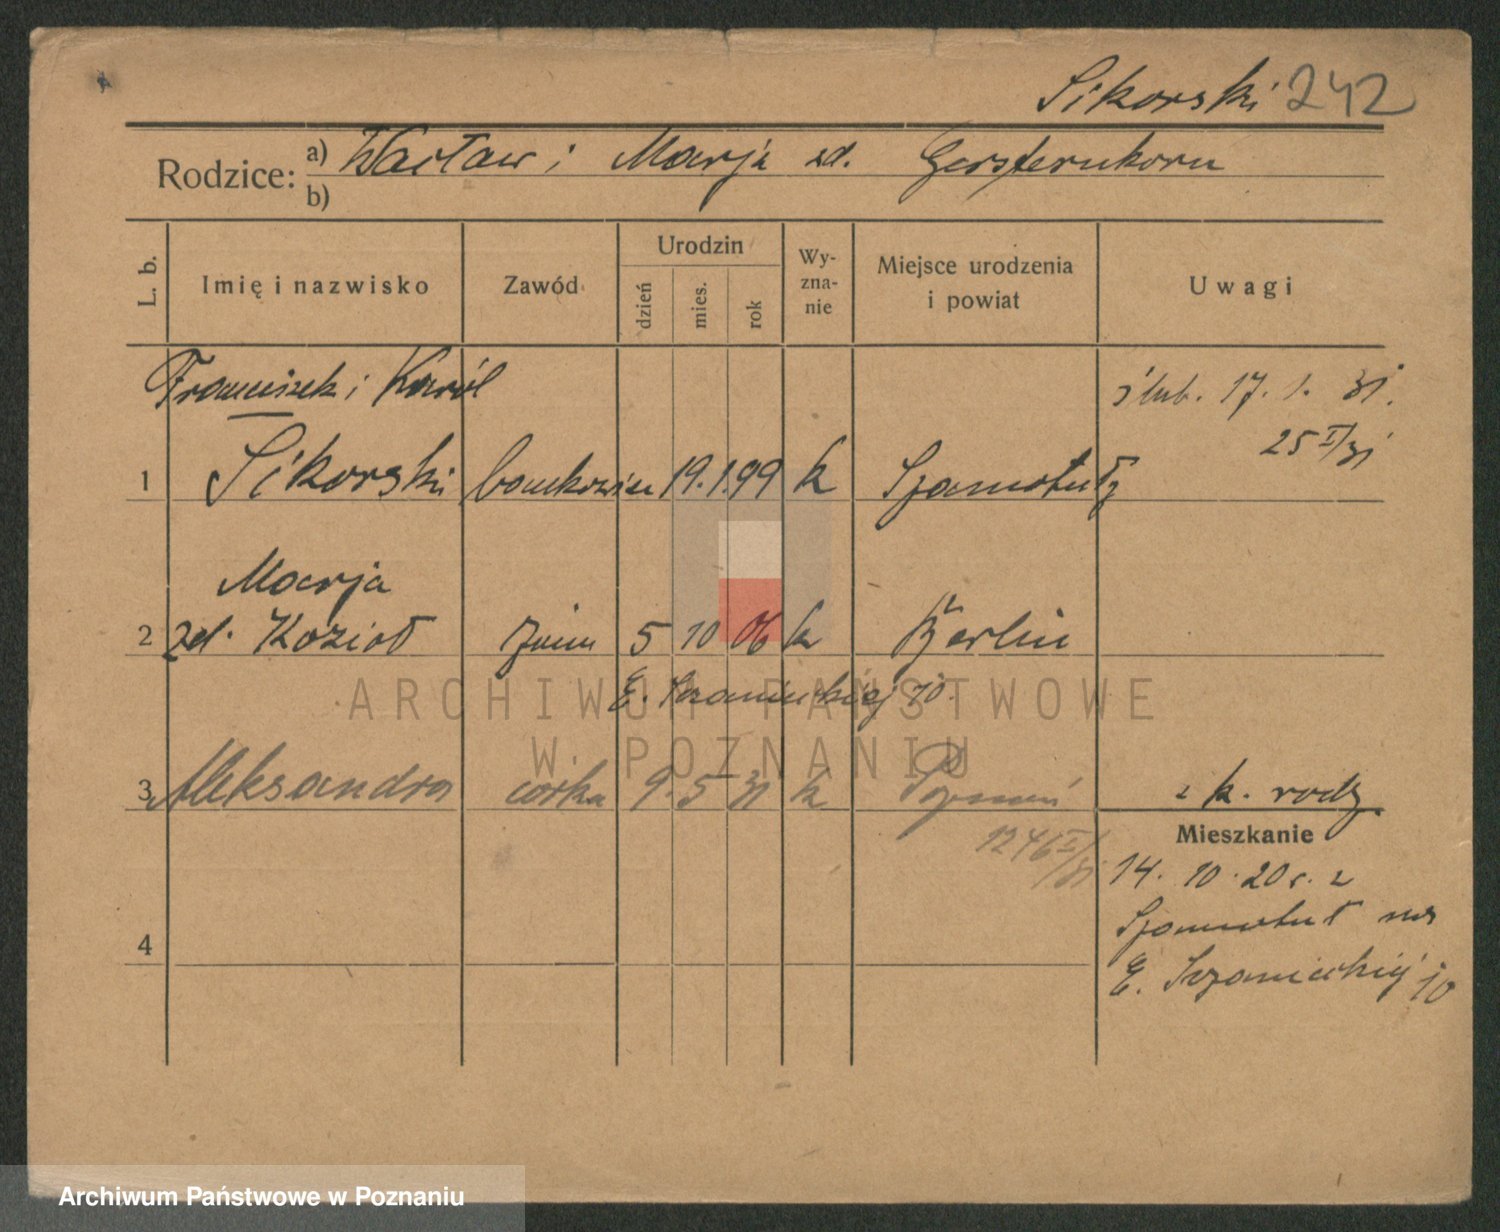 Sikorski 242
Rodzice: a) Wacław i Marja zd. Gersternkorn
b)
L. b. Imię i nazwisko Zawód Urodzin dzień mies. rok Wy-zna-nie Miejsce urodzenia i powiat Uwagi
Franciszek i Karól ślub. 17. 1. 31.
25 I/31
1 Sikorski bankowiec 19. 1. 99 k Szamotuły
Marja
2 zd. Kozioł żona 5 10 06 k Berlin
E. Sczanieckiej 10.
3 Aleksandra córka 9. 5 31 k Poznań z k. rodz.
Mieszkanie
1246 I/31
14. 10. 20 r. z
Szamotuł na
4
E. Sczanieckiej 10
ARCHIWUM PAŃSTWOWE
W POZNANIU
Archiwum Państwowe w Poznaniu